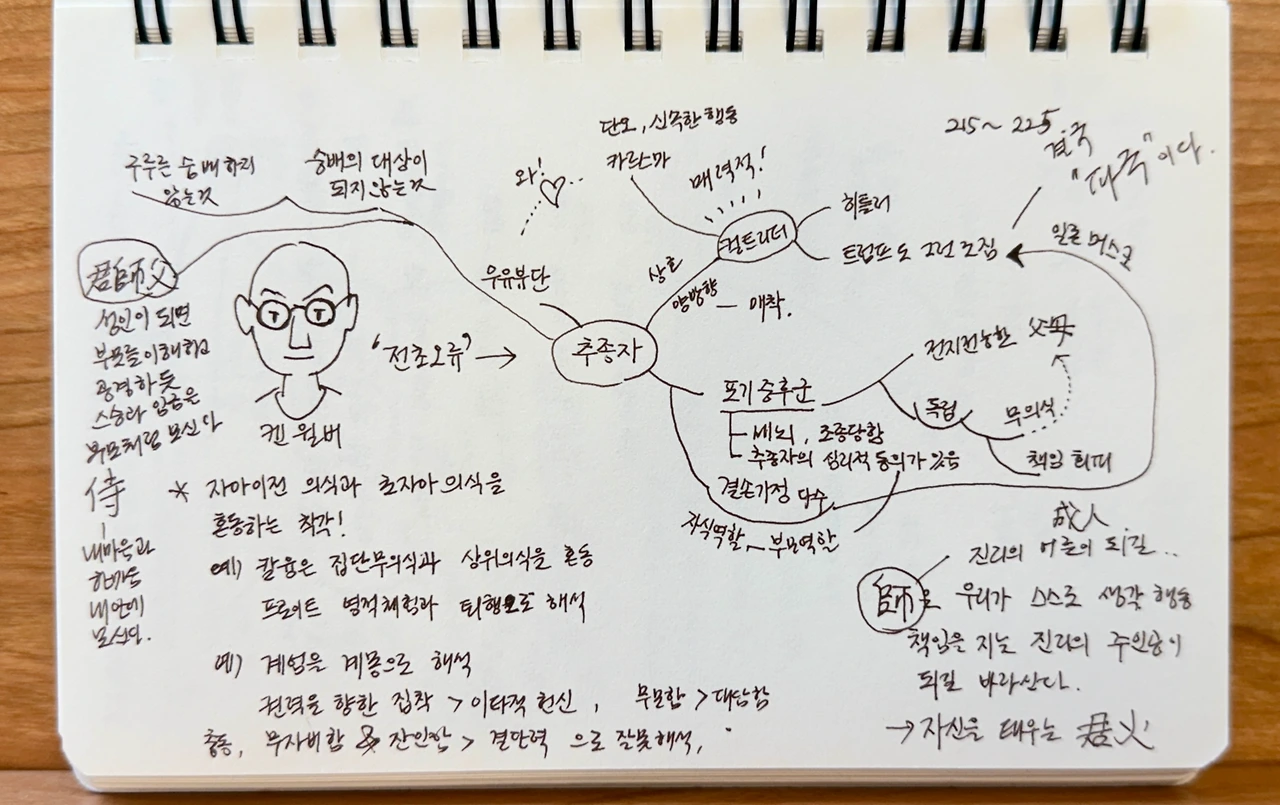 215~225
결국
"파국"이다.
단호, 신속한 행동
카리스마
매력적!
와!
구루를 숭배하지
않는것
숭배의 대상이
되지 않는것
컬트리더
히틀러
트럼프도 그런 조짐
일론 머스크
상호
양방향 — 애착.
우유부단
추종자
"전초오류" →
켄 윌버
君師父
성인이 되면
부모를 이해하고
공경하듯
스승과 임금은
부모처럼 모신다
侍
내마음과
하나로
내안에
모신다.
포기 증후군
세뇌, 조종당함
추종자의 심리적 동의가 있음
결손가정 다수
자식역할 — 부모역할
전지전능한 父母
독립
무의식
책임 회피
* 자아이전 의식과 초자아 의식을
혼동하는 착각!
예) 칼융은 집단무의식과 상위의식을 혼동
프로이트 영적체험과 퇴행으로 해석
예) 계업을 계몽으로 해석
권력을 향한 집착 > 이타적 헌신, 무모함 > 대담함
충동, 무자비함 & 잔인함 > 결단력 으로 잘못해석,
成人
진리의 어른이 되길..
師로 우리가 스스로 생각 행동
책임을 지는 진리의 주인공이
되길 바라신다.
→ 자신을 태우는 君父